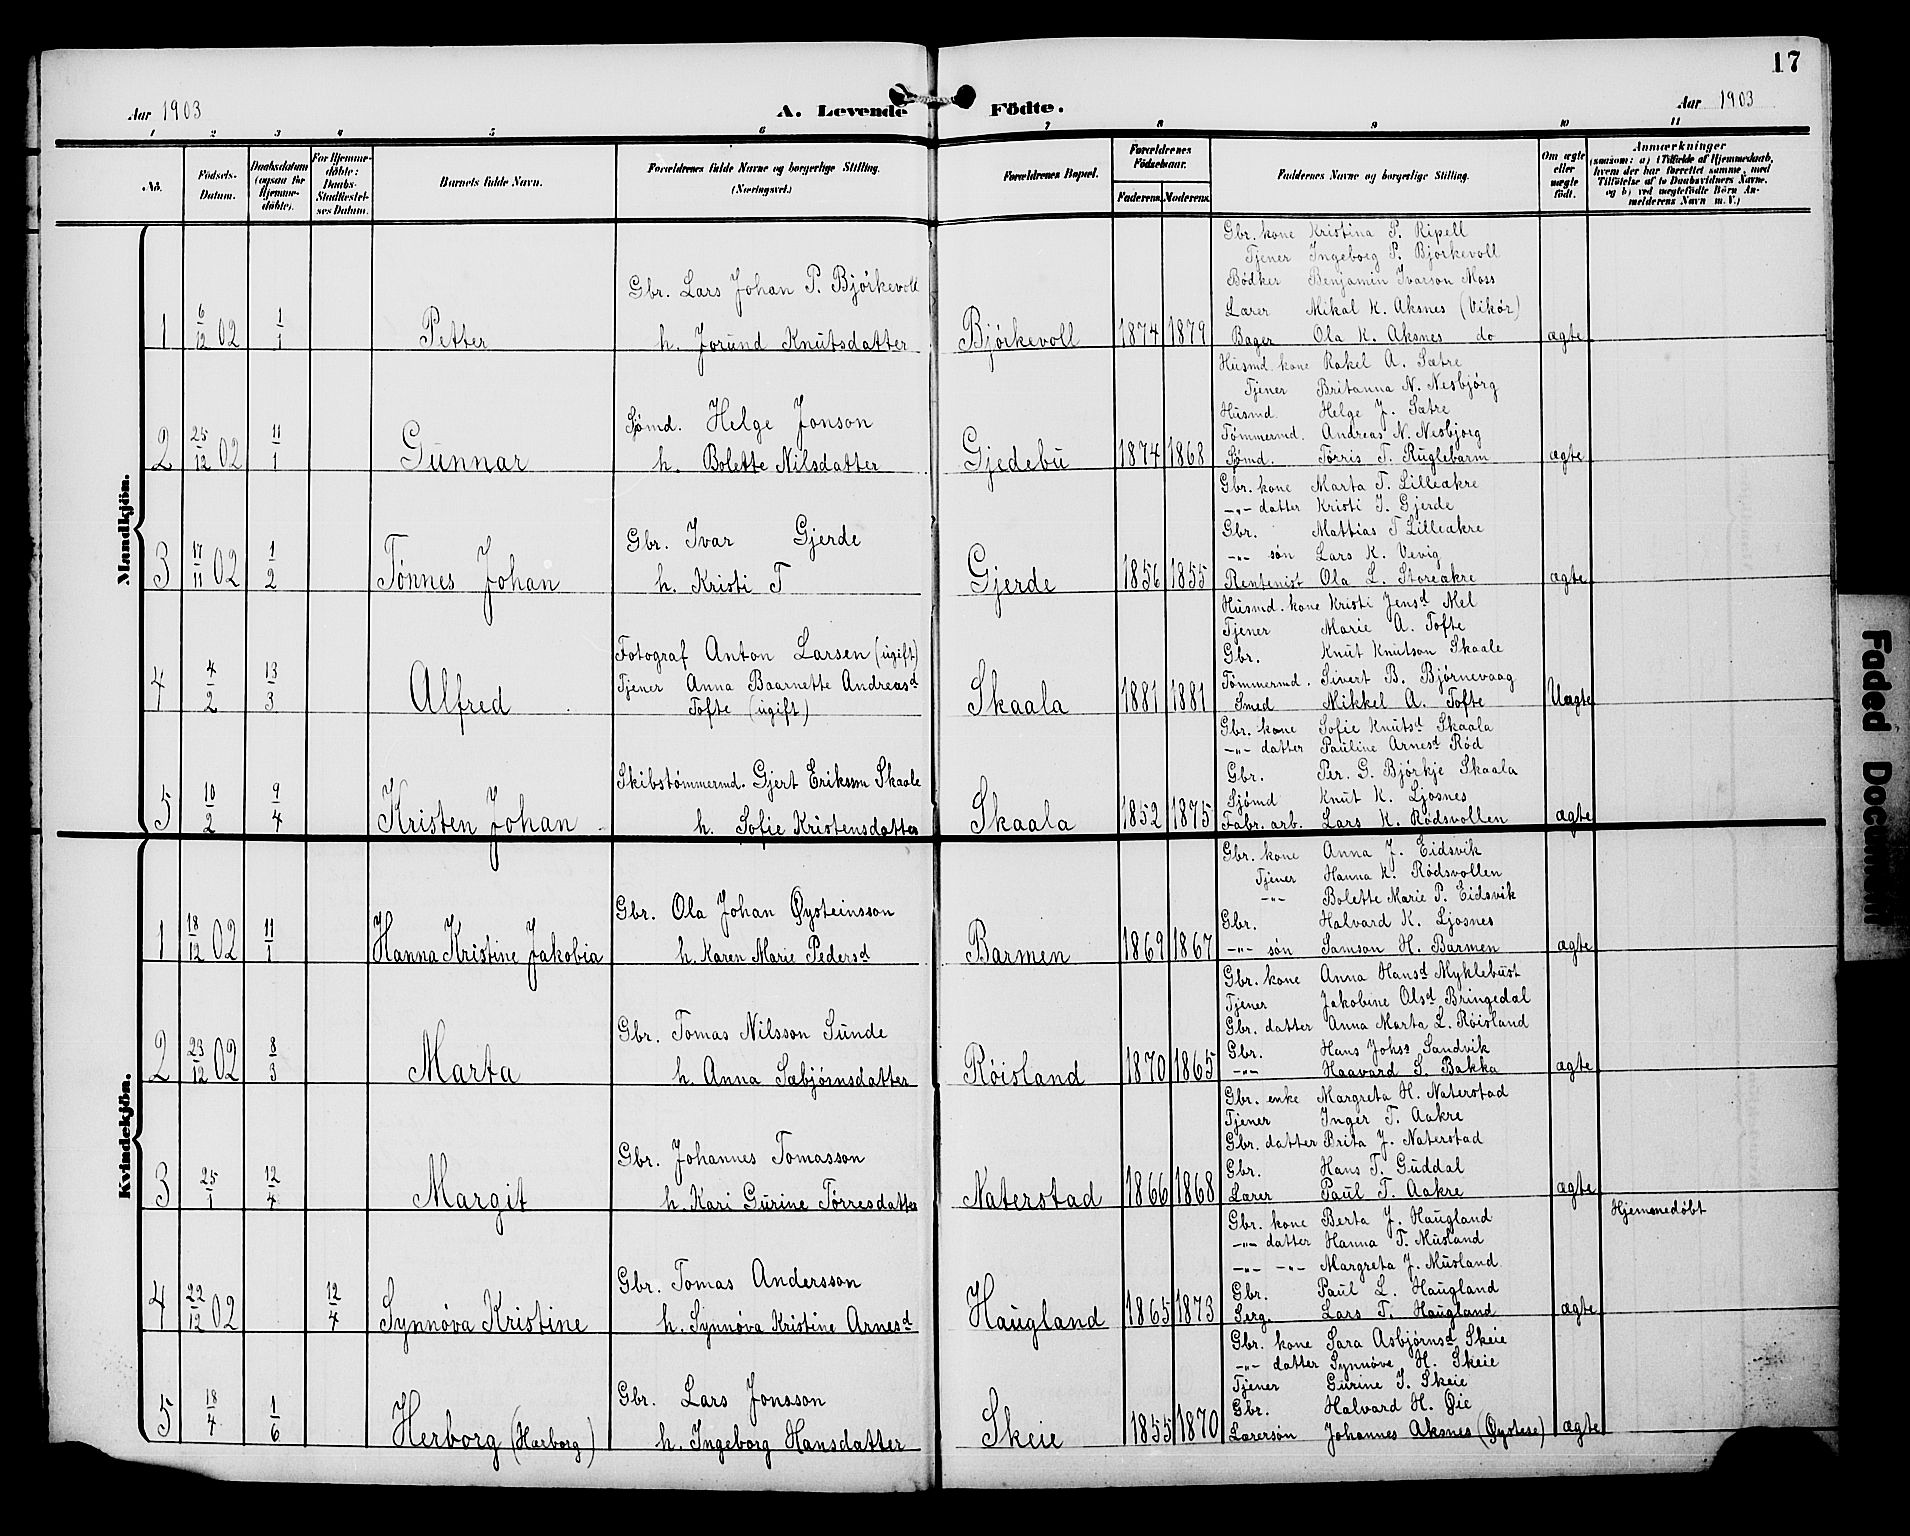 17
Aar 1903
A. Levende Födte.
Aar 1903
1 2 3 4 5 6 7 8 9 10 11
No.
Födsels-Datum.
Daabsdatum (ogsaa for Hjemme-döbte).
For Hjemme-döbte: Daabs-Stadfæstel-ses Datum.
Barnets fulde Navn.
Forældrenes fulde Navne og borgerlige Stilling. (Næringsvei.)
Forældrenes Bopæl.
Forældrenes Födselsaar.
Faderens.
Moderens.
Faddernes Navne og borgerlige Stilling.
Om ægte eller uægte födt.
Anmærkninger
(saasom: a) i Tilfælde af Hjemmedaab,
hvem der har forrettet samme, med
Tilföielse af to Daabsvidners Navne,
og b) ved uægtefödte Börn An-
melderens Navn m. V.)
Mandkjön.
Gbr. kone Kristina P. Ripell
Tjener Ingeborg P. Bjorkevoll
Gbr. Lars Johan P. Bjórkevoll
Bódker Benjamin Ivarson Moss
Lærer Mikal K. Aksnes (Vikór)
1 6/12 02 1/1 Petter h. Jorund Knutsdatter Bjórkevoll 1874 1879 Bager Ola K. Aksnes do ægte
Husmd. kone Rakel A. Sætre
Tjener Britanna N. Nesbjórg
Sjómd. Helge Jonson Husmd. Helge J. Sætre
Tómmermd. Andreas N. Nesbjorg
2 25/12 02 11/1 Gunnar h. Bolette Nilsdatter Gjedebu 1874 1868 Sjómd. Torris T. Ruglebarm ægte
Gbr. kone Marta T. Lilleakre
-"- datter Kristi I. Gjerde
Gbr. Ivar Gjerde Gbr. Mattias T Lilleakre
-"- són Lars K. Vevig
3 17/11 02 1/2 Tónnes Johan h. Kristi T Gjerde 1856 1855 Rentenist Ola L. Storeakre ægte
Husmd. kone Kristi Jensd Mel
Tjener Marie A. Tofte
Fotograf Anton Larsen (ugift) Gbr. Knut Knutson Skaale
Tjener Anna Baarnette Andreasd Tómmermd. Sivert B. Bjórnevaag
4 4/2 13/3 Alfred Tofte (ugift) Skaala 1881 1881 Smed Mikkel A. Tofte Uægte
Gbr. kone Sofie Knutsd Skaala
-"- datter Pauline Arnesd Ród
Skibstómmermd. Gjert Erikssen Skaale Gbr. Per. G. Bjórkje Skaala
Sjómd Knut K. Ljosnes
5 10/2 9/4 Kristen Johan h. Sofie Kristensdatter Skaala 1852 1875 Fabr. arb. Lars K. Ródsvollen ægte
Kvindekjön.
Gbr. kone Anna J. Eidsvik
Tjener Hanna K. Ródsvollen
-"- Bolette Marie P. Eidsvik
Gbr. Ola Johan Øysteinsson Gbr. Halvard K. Ljosnes
1 18/12 02 11/1 Hanna Kristine Jakobia h. Karen Marie Pedersd Barmen 1869 1867 -"- són Samson H. Barmen ægte
Gbr. kone Anna Hansd Myklebust
Tjener Jakobine Olsd Bringedal
Gbr. datter Anna Marta L. Róisland
Gbr. Tomas Nilsson Sunde Gbr. Hans Johss Sandvik
2 23/12 02 8/3 Marta h. Anna Sæbjórnsdatter Róisland 1870 1865 -"- Haavard S. Bakka ægte
Gbr. enke Margreta H. Naterstad
Tjener Inger T. Aakre
Gbr. datter Brita J. Naterstad
Gbr. Johannes Tomasson Gbr. Hans T. Guddal
3 25/1 12/4 Margit h. Kari Gurine Tórresdatter Naterstad 1866 1868 Lærer Paul T. Aakre ægte
Gbr. kone Berta J. Haugland Hjemmedóbt
-"- datter Hanna T. Musland
-"- -"- Margreta J. Musland
Gbr. Tomas Andersson Gbr. Paul L. Haugland
4 22/12 02 12/4 Synnóva Kristine h. Synnóva Kristine Arnesd Haugland 1865 1873 Serg. Lars T. Haugland ægte
Gbr. kone Sara Asbjórnsd Skeie
-"- datter Synnóve H. Skeie
Tjener Gurine I. Skeie
Gbr. Lars Jonsson Gbr. Halvard H. Øie
5 18/4 1/6 Herborg (Harborg) h. Ingeborg Hansdatter Skeie 1855 1870 Lærersón Johannes Aksnes (Øystese) ægte
Faded Document